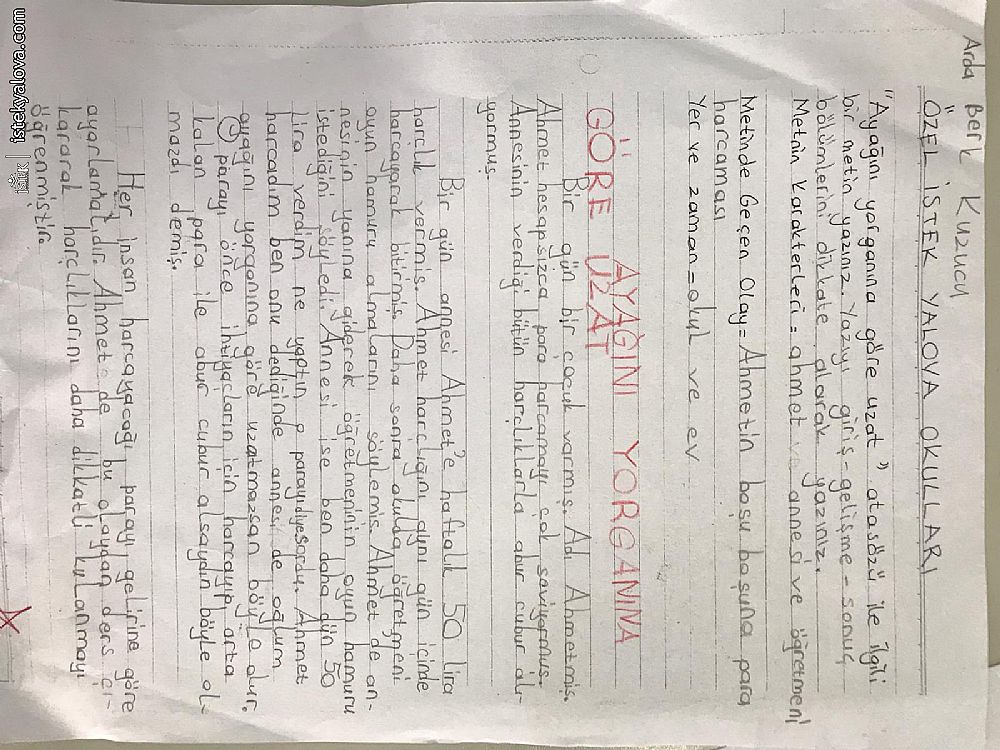 Arda Berk Kuzucu
ÖZEL İSTEK YALOVA OKULLARI
"Ayağını yorganına göre uzat" atasözü ile ilgili
bir metin yazınız. Yazıyı giriş-gelişme-sonuç
bölümlerini dikkate alarak yazınız.
Metnin karakterleri = ahmet ve annesi ve öğretmeni
Metinde Geçen Olay = Ahmetin boşu boşuna para
harcaması
Yer ve zaman = okul ve ev
AYAĞINI YORGANINA
GÖRE UZAT
Bir gün bir çocuk varmış. Adı Ahmetmiş.
Ahmet hesapsizca para harcamayı çok seviyormuş.
Annesinin verdiği bütün harçlıklarla abur cubur alı-
yormuş.
Bir gün annesi Ahmet'e haftalık 50 lira
harçlık vermiş. Ahmet harçlığını aynı gün içinde
harcayarak bitirmiş. Daha sonra okulda öğretmeni
oyun hamuru almalarını söylemiş. Ahmet de an-
nesinin yanına giderek öğretmeninin oyun hamuru
istediğini söyledi. Annesi ise ben daha dün 50
lira verdim ne yaptın o parayı diye sordu. Ahmet
harcadım ben onu dediğinde annesi de oğlum
ayağını yorganına göre uzatmazsan böyle olur.
O parayı önce ihtiyaçların için harcayıp arta
kalan para ile abur cubur alsaydın böyle ol-
mazdı demiş.
Her insan harcayacağı parayı gelirine göre
ayarlamalıdır. Ahmet de bu olaydan ders çı-
kararak harçlıklarını daha dikkatli kulanmayı
öğrenmiştir.
IŞIK | istekyalova.com